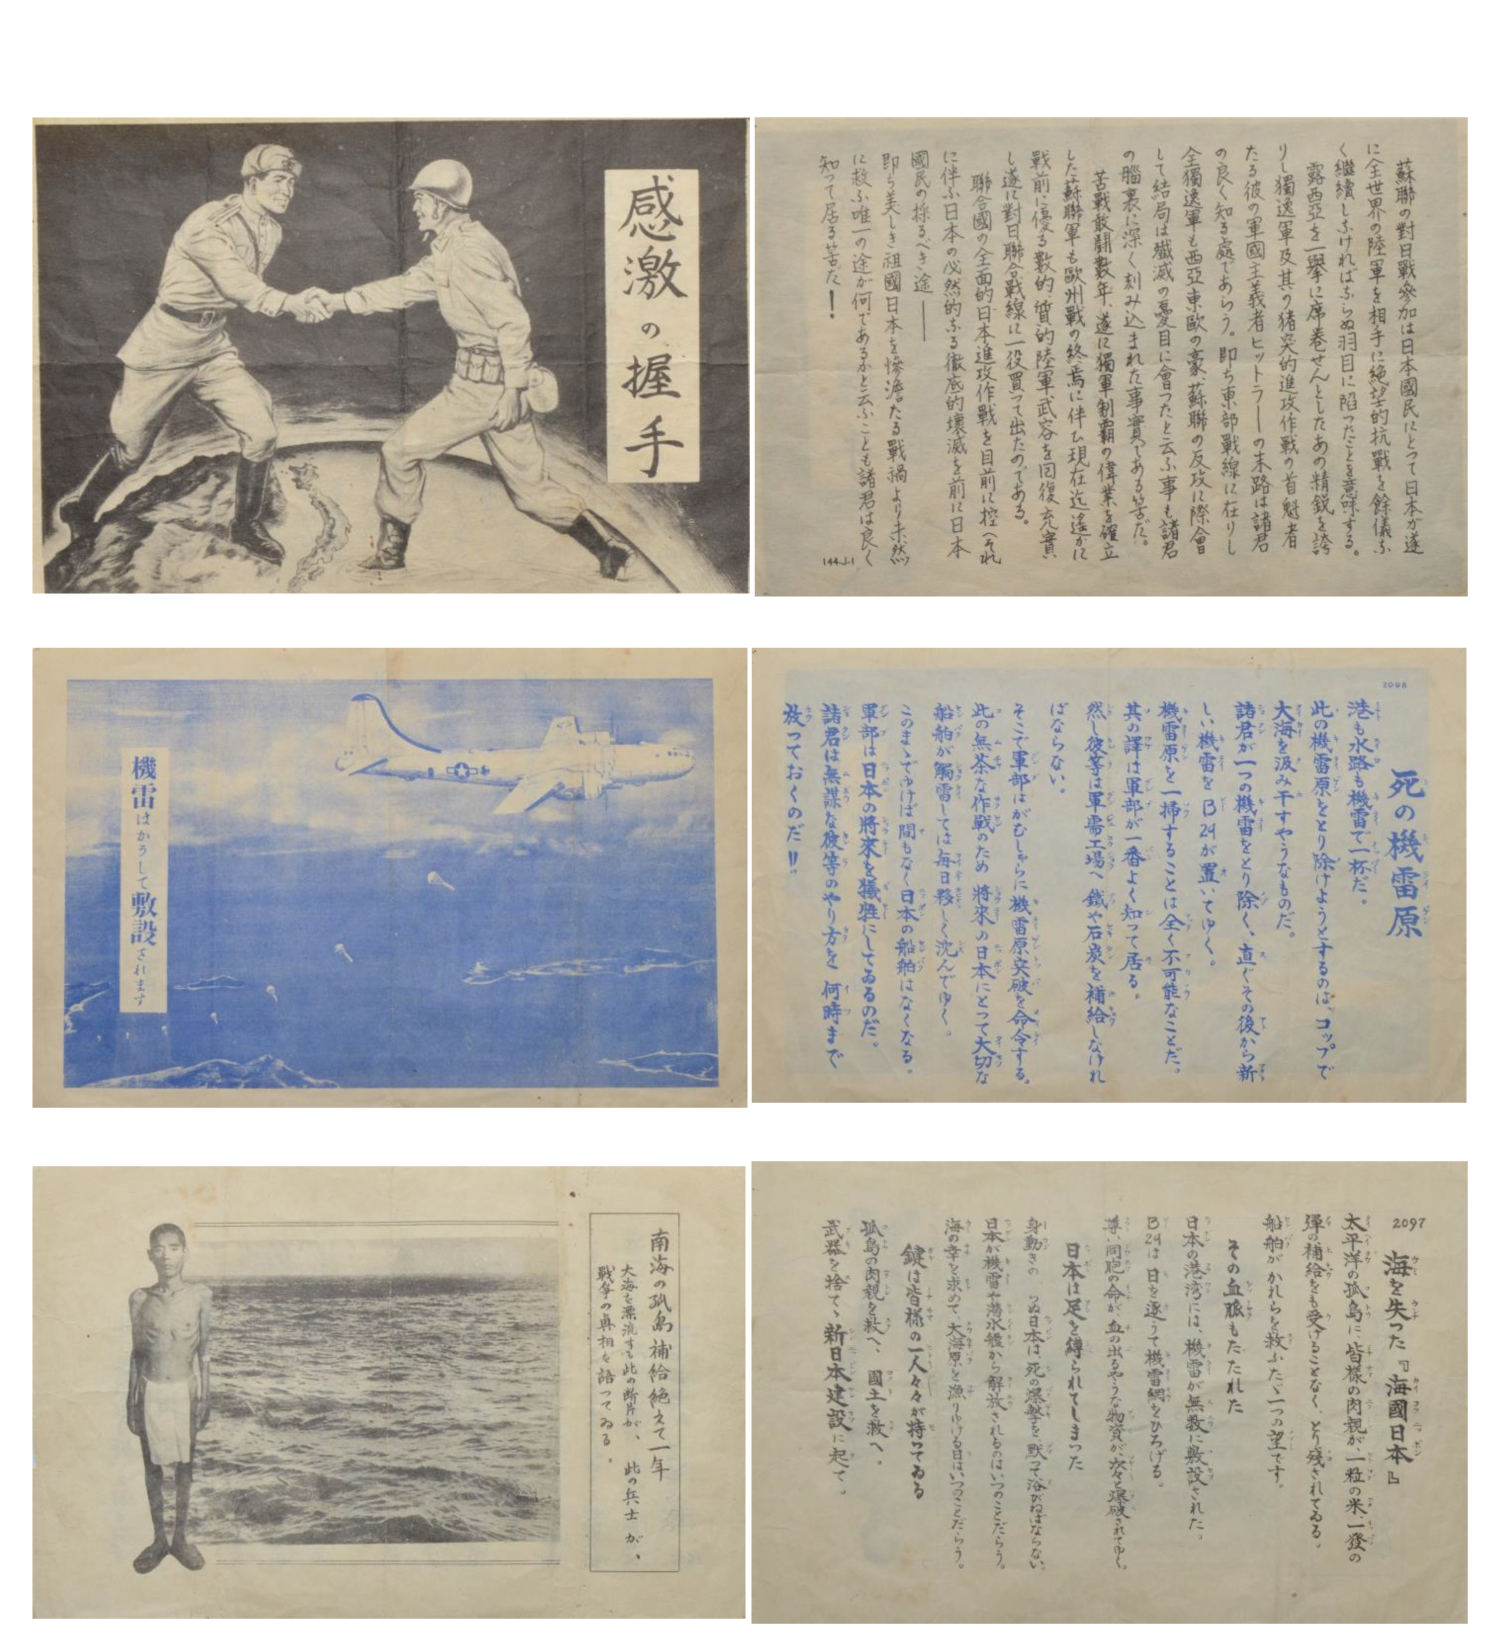 感激の握手
蘇聯の對日戰參加は日本國民にとって日本が遂
に全世界の陸軍を相手に絶望的抗戰を餘儀ふ
く繼續しふければふらぬ羽目に陷ったことを意味する。
露西亞を一擧に席卷せんとしたあの精銳を誇
りし獨逸軍及其の猪突的進攻作戰の首魁者
たる彼の軍國主義者ヒットラーの末路は諸君
の良く知る處であらう。即ち東部戰線に在りし
全獨逸軍も西亞東歐の豪、蘇聯の反攻に際會
して結局は殲滅の憂目に會つたと云ふ事も諸君
の腦裏に深く刻み込まれた事實である筈だ。
苦戰敢鬪數年、遂に獨軍制霸の偉業を確立
した蘇聯軍も歐州戰の終焉に伴ひ現在迄遙かに
戰前に優る數的質的陸軍武容を回復充實
し遂に對日聯合戰線に一役買って出たのである。
聯合國の全面的日本進攻作戰を目前に控へそれ
に伴ふ日本の必然的ふる徹底的壞滅を前に日本
國民の採るべき途――
即ち美しき祖國日本を慘澹たる戰禍より未然
に救ふ唯一の途が何であるかと云ふことも諸君は良く
知って居る筈だ!
144-J-1
機雷はかうして敷設されます
2098
死の機雷原
港も水路も機雷で一杯だ。
此の機雷原をとり除けようとするのは、コップで
大海を汲み干すやうなものだ。
諸君が一つの機雷をとり除く、直ぐその後から新
しい機雷をB29が置いてゆく。
機雷原を一掃することは全く不可能なことだ。
其の譯は軍部が一番よく知って居る。
然し彼等は軍需工場へ鐵や石炭を補給しなけれ
ばならない。
そこで軍部はがむしゃらに機雷原突破を命令する。
此の無茶な作戰のため將來の日本にとって大切な
船舶が觸雷しては每日夥しく沈んでゆく。
このまゝでゆけば間もなく日本の船舶はなくなる。
軍部は日本の將來を犠牲にしてゐるのだ。
諸君は無謀な彼等のやり方を何時まで
放っておくのだ!!
南海の孤島補給絶えて一年
大海を漂流する此の斷片が、此の兵士が、
戰爭の眞相を語ってゐる。
2097
海を失った『海國日本』
太平洋の孤島に皆樣の肉親が一粒の米、一發の
彈の補給をも受けることなく、とり殘されてゐる。
船舶がかれらを救ふたゞ一つの望です。
その血脈もたたれた
日本の港湾には、機雷が無数に敷設された。
B29は日を逐うて機雷網をひろげる。
尊い同胞の命が血の出るやうな物資が次々と爆破されてゆく。
日本は足を縛られてしまった
身動きの ぬ日本は、死の爆撃を、默って浴びねばならない。
日本が機雷や潛水艦から解放されるのはいつのことだらう。
海の幸を求めて、大海原を漁りゆける日はいつのことだらう。
鍵は皆樣の一人々々が持ってゐる
孤島の肉親を救へ、國土を救へ。
武器を捨てゝ新日本建設に起て。